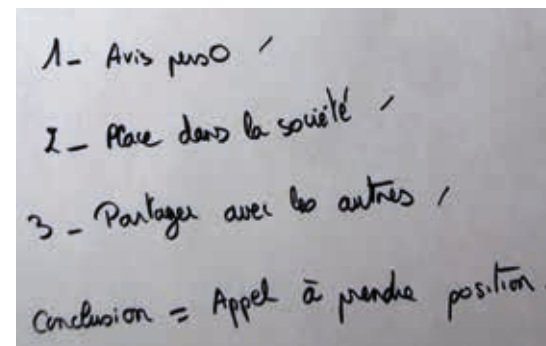 1- Avis perso /
2- Place dans la société /
3- Partager avec les autres /
Conclusion = Appel à prendre position.